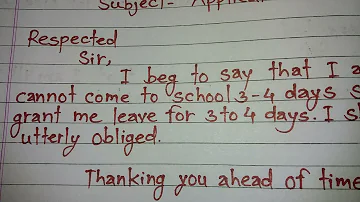 Subject- Applica
Respected
Sir,
I beg to say that I a
cannot come to school 3-4 days s
grant me leave for 3 to 4 days. I s
utterly obliged.
Thanking you ahead of time